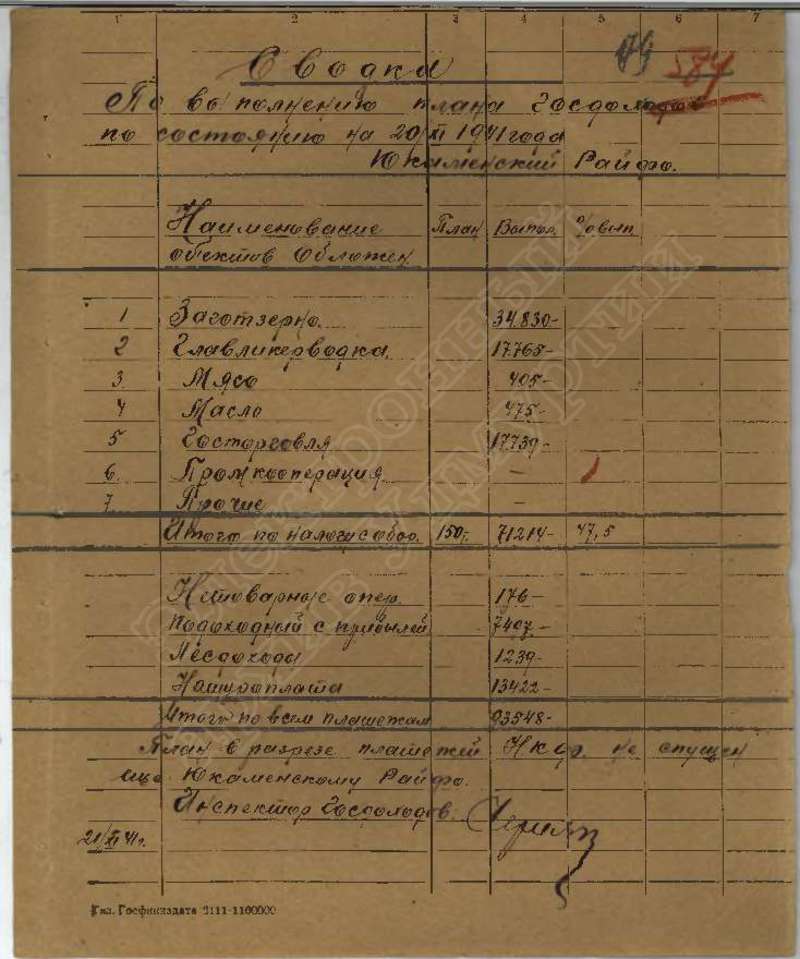 1 2 3 4 5 6 7
79 587
Сводка
По выполнению плана Госдоходов
по состоянию на 20/XI 1941 года
Юкаменский Райфо.
Наименование План Выпол. % вып
обектов обложен
1 Заготзерно 34.830-
2 Главликерводка 17.765-
3 Мясо 405-
4 Масло 475-
5 Госторговля 17.739-
6. Промкооперация -
7. Прочие -
Итого по налогу с обор. 150,- 71214- 47,5
Нетоварные опер. 176-
Подоходный с прибылей 7407-
Лесдохода 1239-
Натуроплата 13422-
Итого по всем платежам 93548-
План в разрезе платежей не спущен
еще Юкаменскому Райфо.
Инспектор Госдоходов:
21/XI 41 г.
Тип. Госфиниздата 2111-1100000